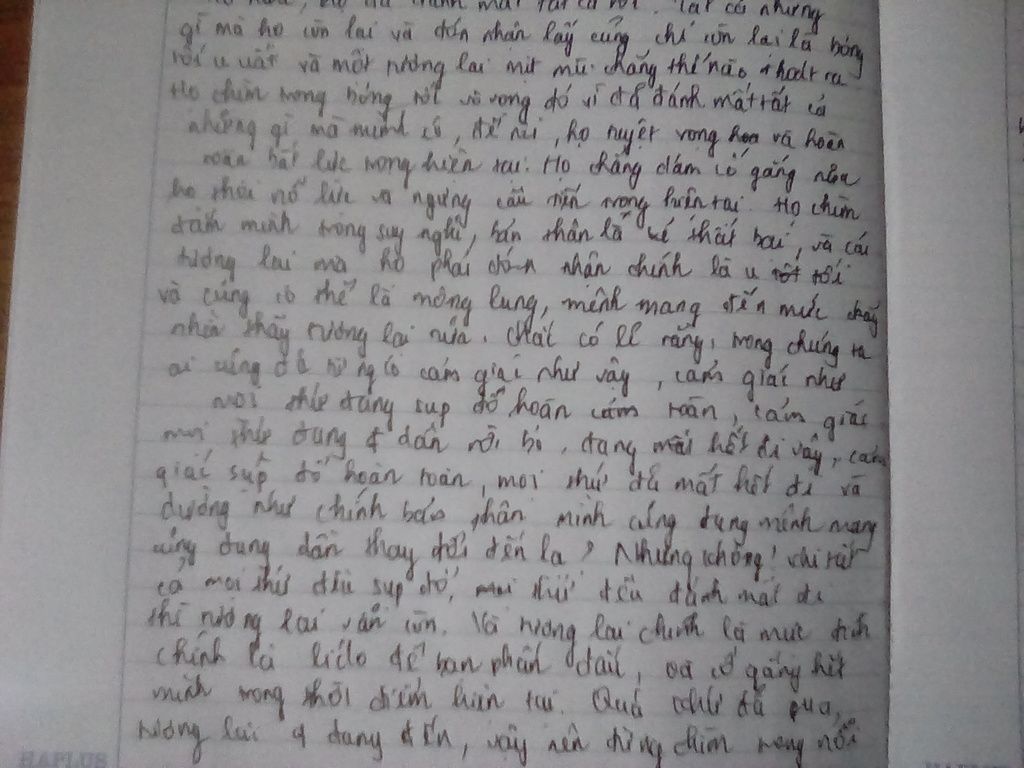 đã đánh mất tất cả rồi. Tất cả những
gì mà họ còn lại và đón nhận lấy cũng chỉ còn lại là bóng
tối u uất và một tương lai mịt mù chẳng thế nào thoát ra
Họ chìm trong bóng tối vô vọng đó vì đã đánh mất tất cả
những gì mà mình có, để rồi, họ tuyệt vọng và hoàn
toàn bất lực trong hiện tại. Họ chẳng dám cố gắng nữa
họ thôi nổ lực và ngưng cầu tiến trong hiện tại. Họ chìm
đắm mình trong suy nghĩ, bản thân là kẻ thất bại, và cái
tương lai mà họ phải đón nhận chính là u tốt tối
và cũng có thể là mông lung, mênh mang đến mức chẳng
nhìn thấy tương lai nữa. Chắc có lẽ rằng, trong chúng ta
ai cũng đã từng có cảm giác như vậy, cảm giác như
mọi thứ đang sụp đổ hoàn toàn, cảm giác
mọi thứ đang dần rời bỏ, đang mất hết đi vậy, cảm
giác sụp đổ hoàn toàn, mọi thứ đã mất hết đi và
dường như chính bản thân mình cũng đang mênh mang
cũng đang dần thay đổi đến lạ? Nhưng không! khi tất
cả mọi thứ đều sụp đổ, mọi thứ đều đánh mất đi
thì tương lai vẫn còn. Và tương lai chính là mục đích
chính là lí do để bạn phấn đấu, và cố gắng hết
mình trong thời điểm hiện tại. Quá khứ đã qua,
tương lai đang đến, vậy nên đừng chìm trong nỗi
HAPLUS